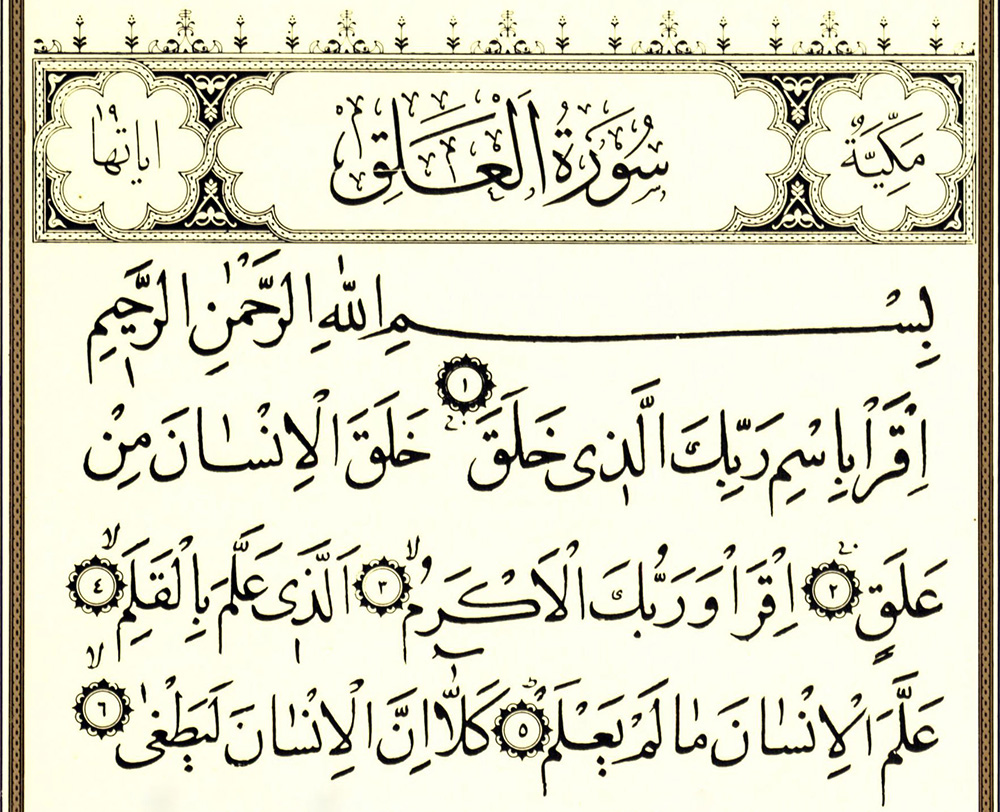 مَكِّيَّةٌ
سُورَةُ الْعَلَقِ
اياتها ١٩
بِسْمِ اللّٰهِ الرَّحْمٰنِ الرَّحٖيمِ
اِقْرَاْ بِاسْمِ رَبِّكَ الَّذٖى خَلَقَ ١ خَلَقَ الْاِنْسَانَ مِنْ
عَلَقٍ ٢ اِقْرَاْ وَرَبُّكَ الْاَكْرَمُ ٣ اَلَّذٖى عَلَّمَ بِالْقَلَمِ ٤
عَلَّمَ الْاِنْسَانَ مَا لَمْ يَعْلَمْ ٥ كَلَّا اِنَّ الْاِنْسَانَ لَيَطْغٰى ٦